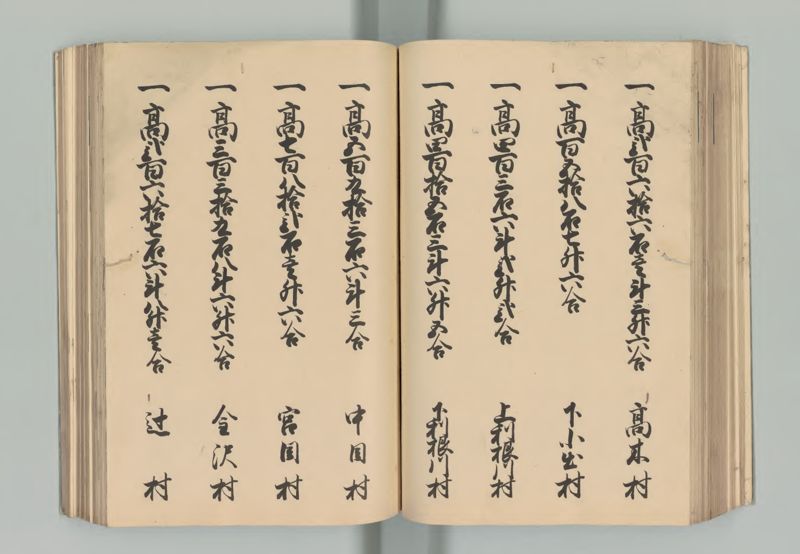 一高弐百六拾六石壱斗三升六合 高木村
一高百五拾八石七升六合 下小出村
一高四百三石六斗弐升弐合 上利根川村
一高四百拾五石三斗六升五合 下利根川村
一高五百五拾三石六斗三合 中目村
一高七百八拾弐石壱升六合 宮目村
一高三百三拾五石八斗六升六合 金沢村
一高弐百六拾七石六斗八升壱合 辻村